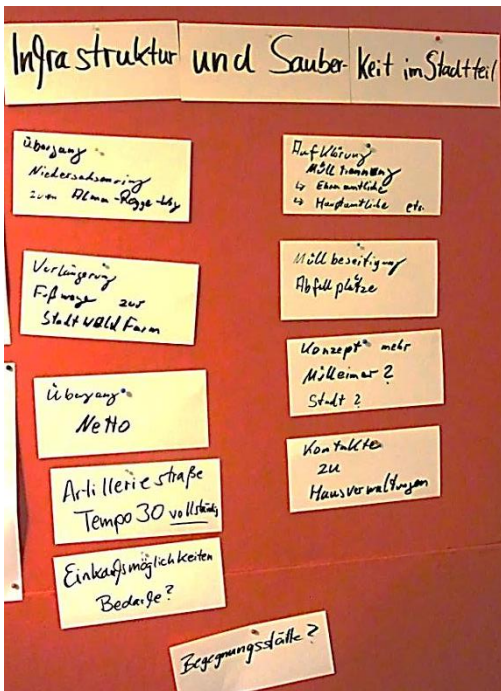 Infrastruktur und Sauber- keit im Stadtteil
Übergang
Niedersachsenring
zum Alma-Rogge-Weg
Verlängerung
Fußwege zur
Stadtwald Farm
Übergang
Netto
Artilleriestraße
Tempo 30 vollständig
Einkaufsmöglichkeiten
Bedarfe?
Aufklärung
Mülltrennung
↳ Ehrenamtliche
↳ Hauptamtliche etc.
Müllbeseitigung
Abfallplätze
Konzept mehr
Mülleimer?
Stadt?
Kontakte
zu
Hausverwaltungen
Begegnungsstätte?